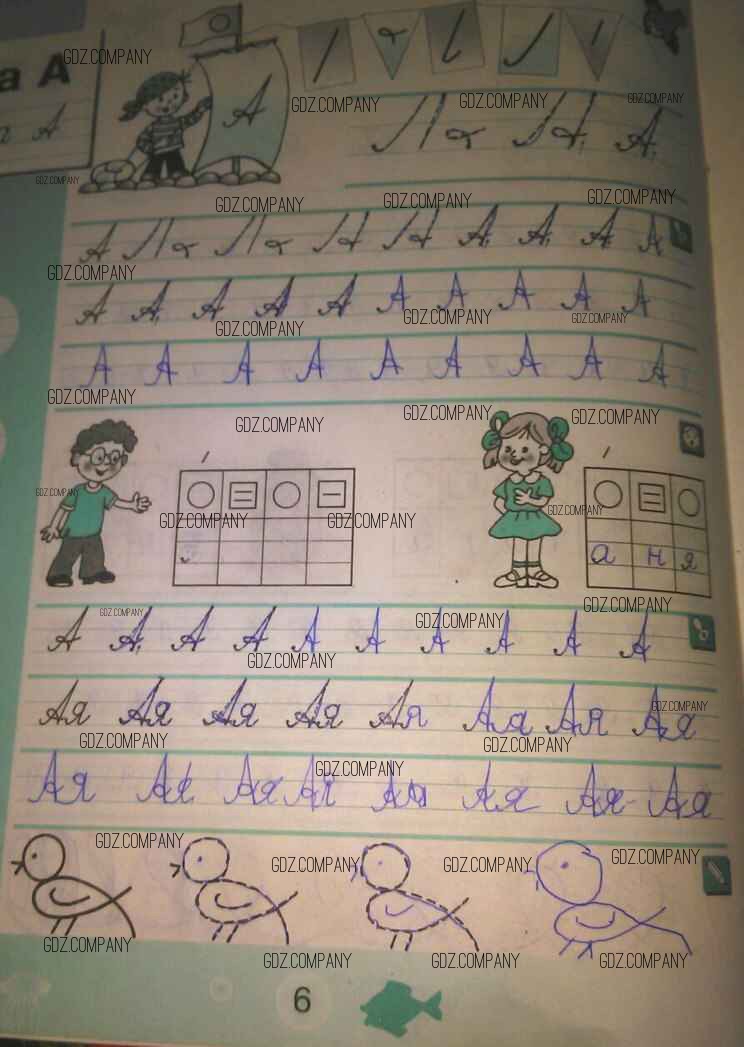 а А
А
А
GDZ.COMPANY
GDZ.COMPANY
GDZ.COMPANY
GDZ.COMPANY
А
GDZ.COMPANY
GDZ.COMPANY
GDZ.COMPANY
GDZ.COMPANY
А А А А А
GDZ.COMPANY
А А А А А А А А А А
GDZ.COMPANY
GDZ.COMPANY
GDZ.COMPANY
А А А А А А А А А
GDZ.COMPANY
GDZ.COMPANY
GDZ.COMPANY
GDZ.COMPANY
GDZ.COMPANY
GDZ.COMPANY
GDZ.COMPANY
GDZ.COMPANY
а н я
GDZ.COMPANY
GDZ.COMPANY
GDZ.COMPANY
А А А А А А А А А А
GDZ.COMPANY
Ая Ая Ая Ая Ая Ая Ая Ая
GDZ.COMPANY
GDZ.COMPANY
GDZ.COMPANY
GDZ.COMPANY
Ая Ая Ая Ая Ая Ая Ая Ая
GDZ.COMPANY
GDZ.COMPANY
GDZ.COMPANY
GDZ.COMPANY
GDZ.COMPANY
GDZ.COMPANY
GDZ.COMPANY
GDZ.COMPANY
6